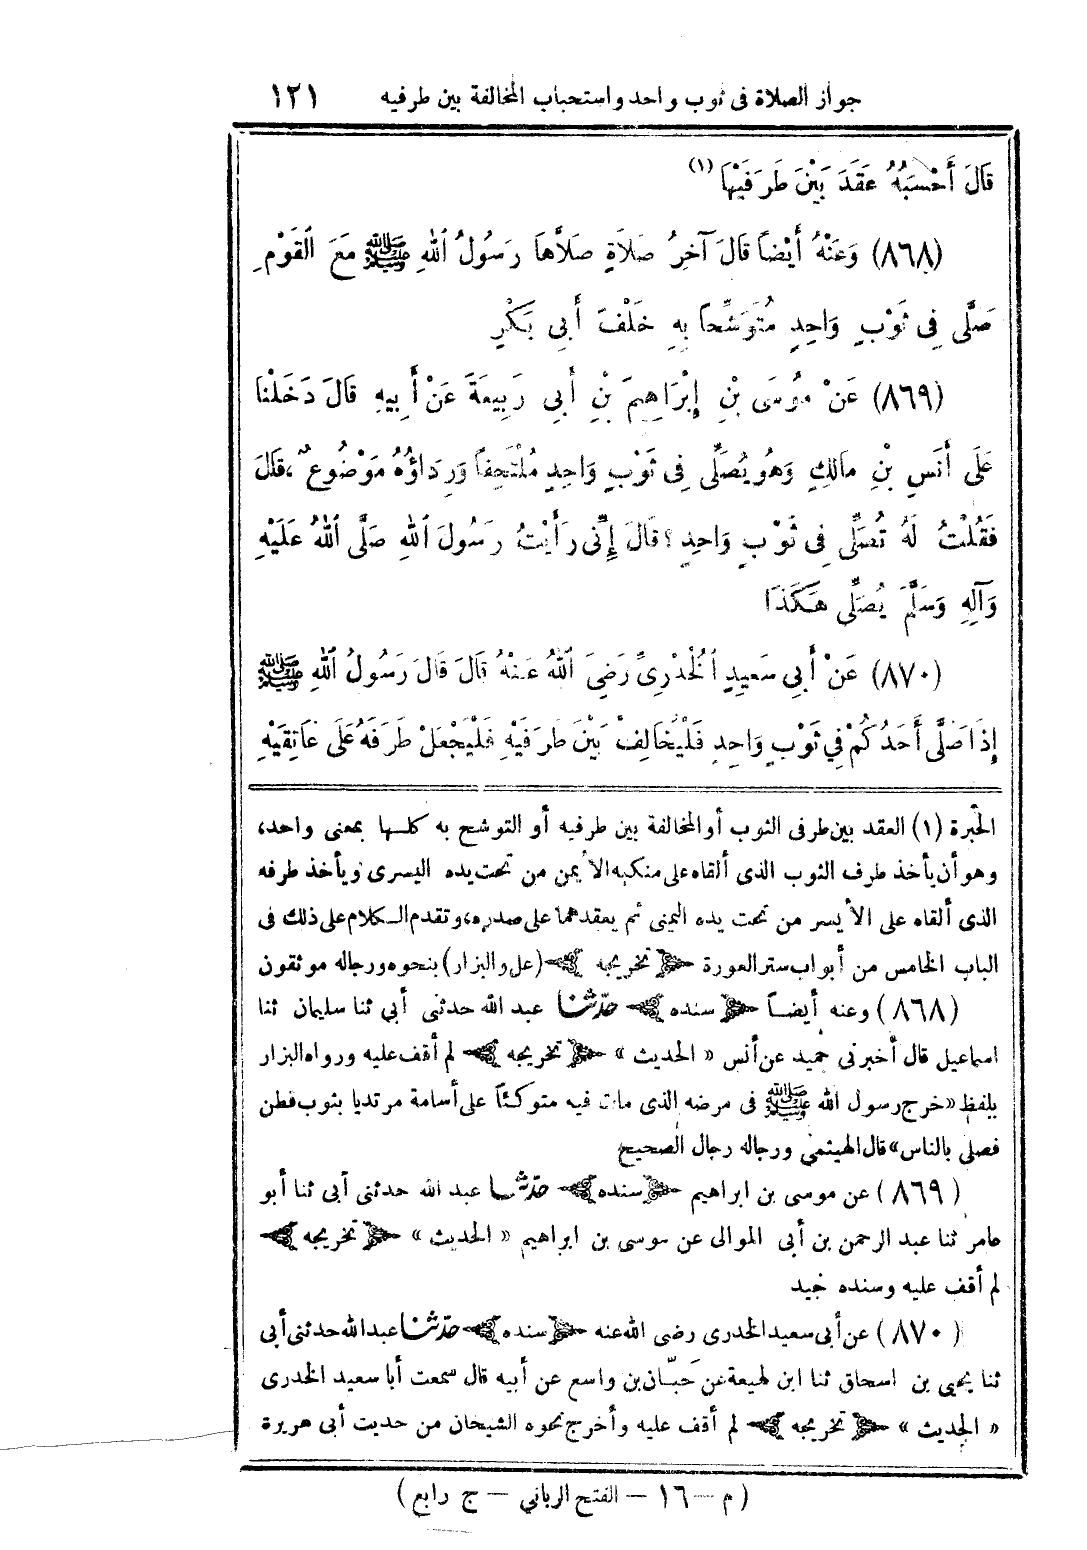 جواز الصلاة فى ثوب واحد واستحباب المخالفة بين طرفيه ١٢١
قَالَ أَحْسَبُهُ عَقَدَ بَيْنَ طَرَفَيْهَا (١)
(٨٦٨) وَعَنْهُ أَيْضاً قَالَ آخِرُ صَلاَةٍ صَلاَّهَا رَسُولُ اللهِ ﷺ مَعَ الْقَوْمِ
صَلَّى فِى ثَوْبٍ وَاحِدٍ مُتَوَشِّحاً بِهِ خَلْفَ أَبِى بَكْرٍ
(٨٦٩) عَنْ مُوسَى بْنِ إِبْرَاهِيمَ بْنِ أَبِى رَبِيعَةَ عَنْ أَبِيهِ قَالَ دَخَلْنَا
عَلَى أَنَسِ بْنِ مَالِكٍ وَهُوَ يُصَلِّى فِى ثَوْبٍ وَاحِدٍ مُلْتَحِفاً وَرِدَاؤُهُ مَوْضُوعٌ، قَالَ
فَقُلْتُ لَهُ تُصَلِّى فِى ثَوْبٍ وَاحِدٍ؟ قَالَ إِنِّى رَأَيْتُ رَسُولَ اللهِ صَلَّى اللهُ عَلَيْهِ
وَآلِهِ وَسَلَّمَ يُصَلِّى هَكَذَا
(٨٧٠) عَنْ أَبِى سَعِيدٍ الْخُدْرِىِّ رَضِىَ اللهُ عَنْهُ قَالَ قَالَ رَسُولُ اللهِ ﷺ
إِذَا صَلَّى أَحَدُكُمْ فِي ثَوْبٍ وَاحِدٍ فَلْيُخَالِفْ بَيْنَ طَرَفَيْهِ فَلْيَجْعَلْ طَرَفَهُ عَلَى عَاتِقَيْهِ
الحبرة (١) العقد بين طرفى الثوب أو المخالفة بين طرفيه أو التوشح به كلها بمعنى واحد،
وهو أن يأخذ طرف الثوب الذى ألقاه على منكبه الأيمن من تحت يده اليسرى ويأخذ طرفه
الذى ألقاه على الأيسر من تحت يده اليمنى ثم يعقدهما على صدره، وتقدم الكلام على ذلك فى
الباب الخامس من أبواب ستر العورة ﴿تخريجه﴾ (عل والبزار) بنحوه ورجاله موثقون
(٨٦٨) وعنه أيضاً ﴿سنده﴾ حدّثنا عبد الله حدثنى أبي ثنا سليمان ثنا
اسماعيل قال أخبرنى حميد عن أنس « الحديث » ﴿تخريجه﴾ لم أقف عليه ورواه البزار
بلفظ «خرج رسول الله ﷺ فى مرضه الذى مات فيه متوكئاً على أسامة مرتديا بثوب قطن
فصلى بالناس» قال الهيثمى ورجاله رجال الصحيح
(٨٦٩) عن موسى بن ابراهيم ﴿سنده﴾ حدّثنا عبد الله حدثنى أبى ثنا أبو
عامر ثنا عبد الرحمن بن أبى الموالى عن موسى بن ابراهيم « الحديث » ﴿تخريجه﴾
لم أقف عليه وسنده جيد
(٨٧٠) عن أبى سعيد الخدرى رضى الله عنه ﴿سنده﴾ حدّثنا عبد الله حدثنى أبى
ثنا يحيى بن اسحاق ثنا ابن لهيعة عن حَبّان بن واسع عن أبيه قال سمعت أبا سعيد الخدرى
« الحديث » ﴿تخريجه﴾ لم أقف عليه وأخرج نحوه الشيخان من حديث أبى هريرة
(م – ١٦ – الفتح الرباني – ج رابع)